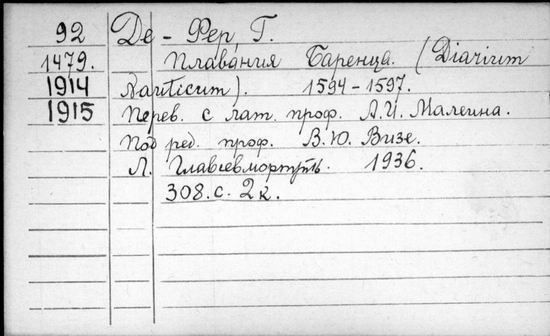 92 Де-Фер, Г.
1479. Плавания Баренца. (Diarium
1914 Nauticum). 1594-1597.
1915 Перев. с лат. проф. А.И. Малеина.
Под ред. проф. В.Ю. Визе.
Л. Главсевморпуть. 1936.
308.с. 2к.